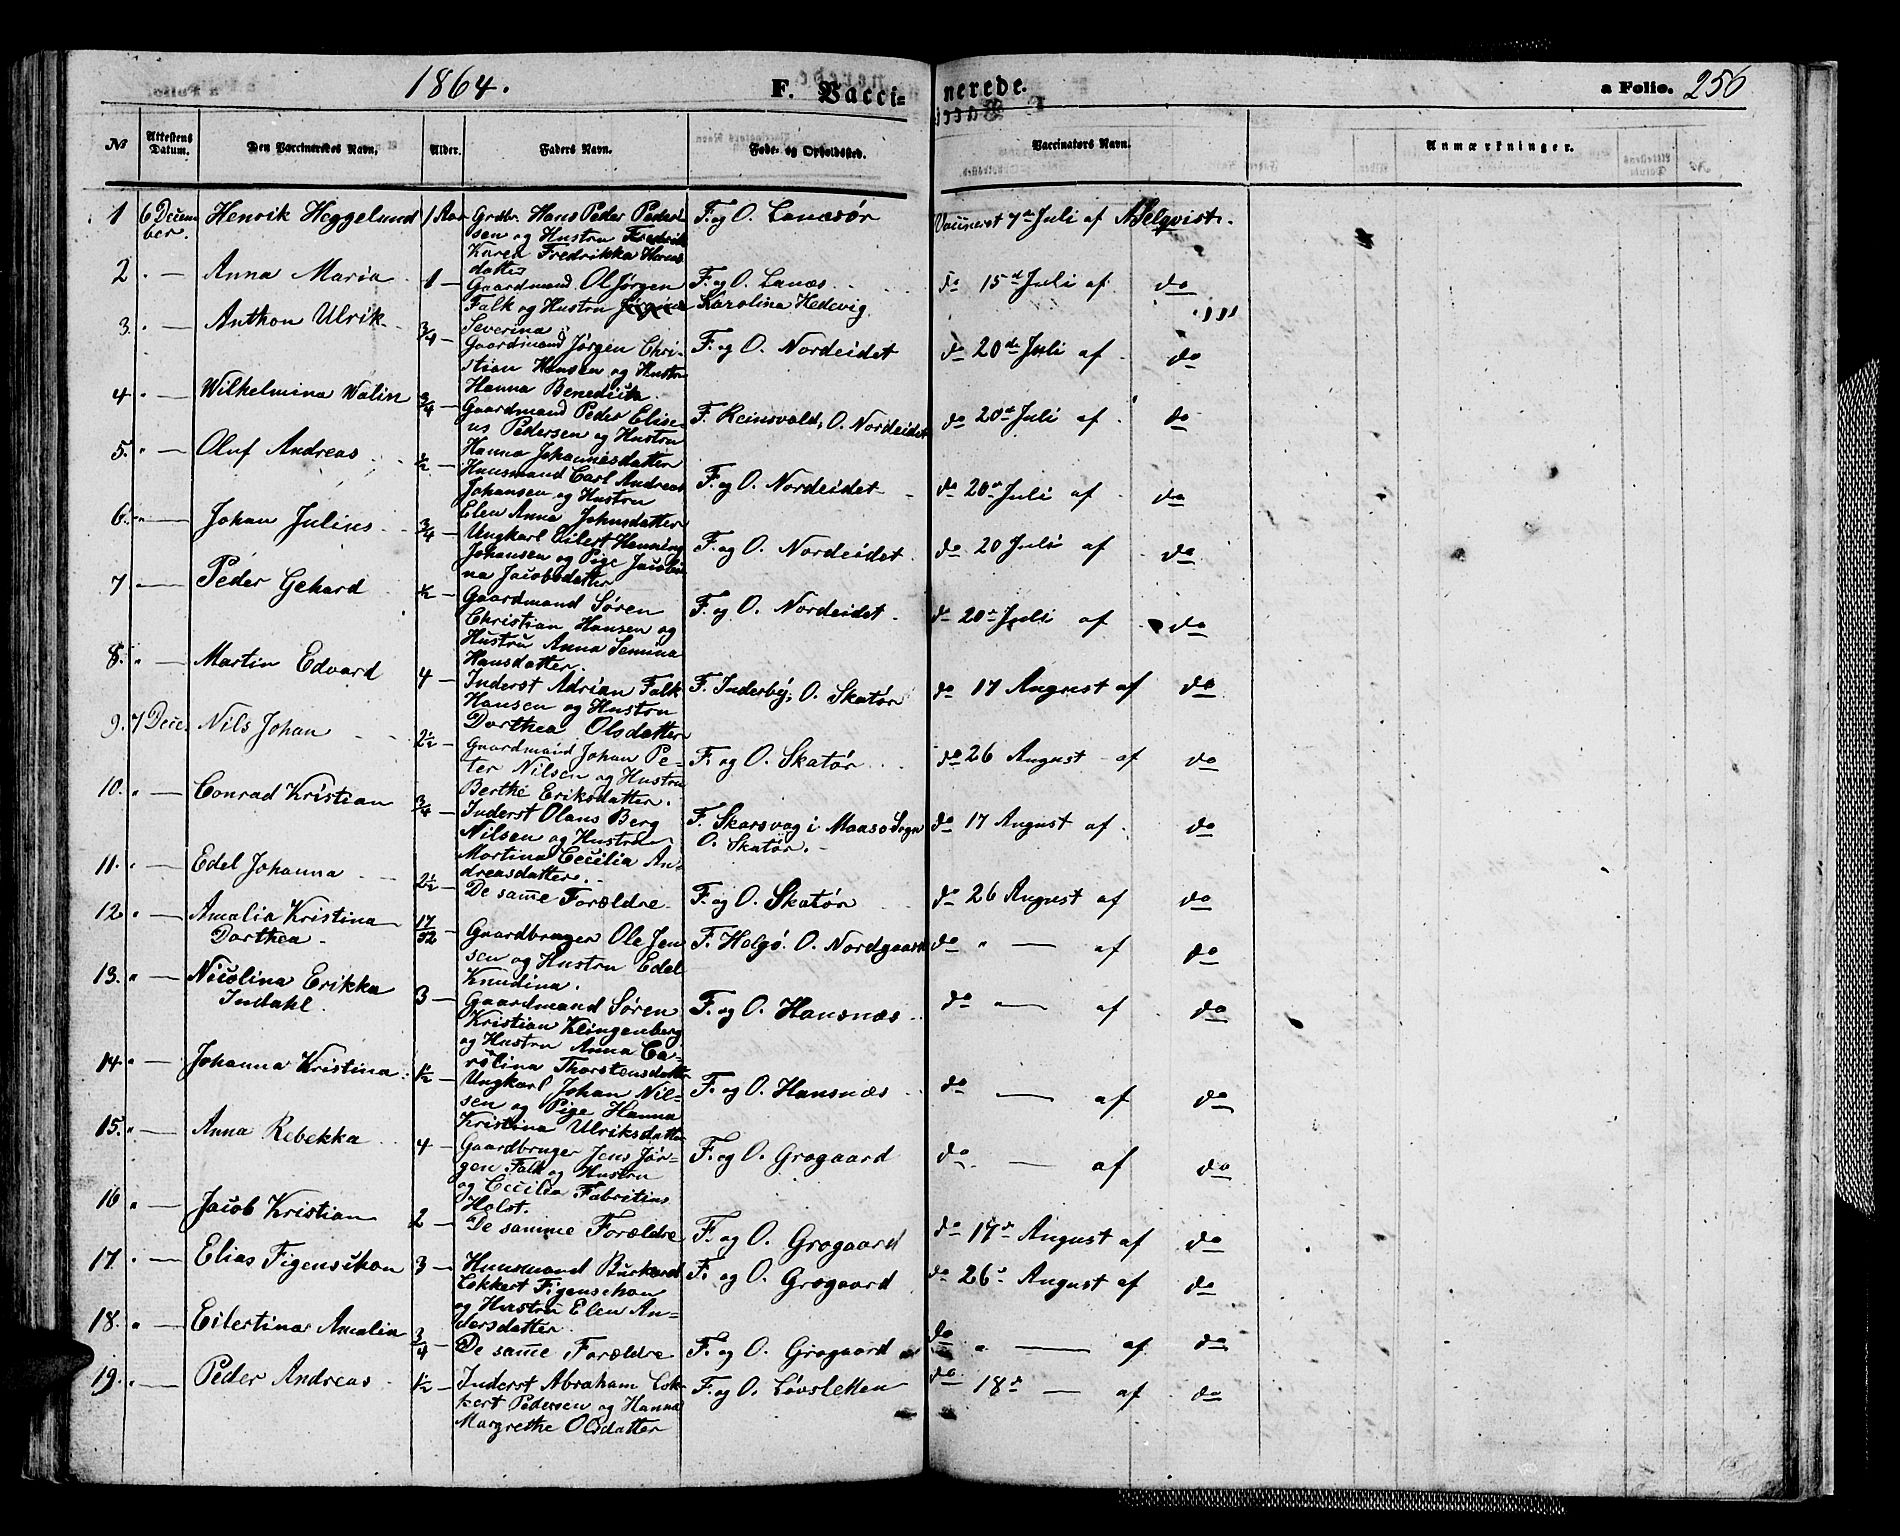 1864. F. Vacci- nerede. a Folio. 256
No Attestens Datum. Den Vaccineredes Navn. Alder. Faders Navn. Føde- og Opholdsted. Vaccinators Navn. Anmærkninger.
1 6 Decem ber. Henrik Heggelund 1 Aar Grdbr. Hans Peder Peder- F. og O. Lanæsør Vaccineret 7de Juli af
sen og Hustru Fredrik
Karen Fredrikka Hans
datter
2 " — Anna Maria 1 — Gaardmand Ol Jørgen F. og O. Lanæs do 15d Juli af do
Falk og Hustru Karolina Hedevig
Severina
3. " — Anthon Ulrik 3/4 — Gaardmand Jørgen Chri- F. og O. Nordeidet do 20de Juli af do
stian Hansen og Hustru
Hanna Benedicte
4 " — Wilhelmina Walin 3/4 — Gaardmand Peder Elise- F. Reinsvold, O. Nordeidet do 20de Juli af do
us Pedersen og Hustru
Hanna Johannesdatter
5. " — Oluf Andreas 1/2 — Huusmand Carl Andreas F. og O. Nordeidet do 20de Juli af do
Johansen og Hustru
Elen Anna Johnsdatter
6. " — Johan Julius 3/4 — Ungkarl Eilert Henning F. og O. Nordeidet do 20 Juli af do
Johansen og Pige Jacobi
na Jacobsdatter
7 " — Peder Gehard 1/2 — Gaardmand Søren F. og O. Nordeidet do 20de Juli af do
Christian Hansen og
Hustru Anna Semina
Hansdatter.
8. " — Martin Edvard 4 — Inderst Adrian Falk F. Inderby, O. Skatør do 17 August af do
Hansen og Hustru
Dorthea Olsdatter
9. 7 Dece. Nils Johan 2 1/2 — Gaardmand Johan Pe- F. og O. Skatør do 26 August af do
ter Nilsen og Hustru
Berthe Eriksdatter.
10. " — Conrad Kristian 3/4 — Inderst Olaus Berg F. Skarsvag i Maasø Sogn do 17 August af do
Nilsen og Hustru O. Skatør.
Martina Cecilia An-
dreasdatter.
11. " — Edel Johanna 2 1/2 — De same Forældre F. og O. Skatør do 26 August af do
12 " — Amalia Kristina 17/52 — Gaardbruger Ole Jen F. Helgø. O. Nordgaard do " — af do
Dorthea sen og Hustru Edel
Knudina.
13. " — Nicolina Erikka 3 — Gaardmand Søren F. og O. Hansnæs do — af do
Indahl. Kristian Klingenberg
og Hustru Anna Ca-
rolina Thorstensdatter
14 " — Johanna Kristina 1/2 — Ungkarl Johan Nil- F. og O. Hansnæs do — af do
sen og Pige Hanna
Kristina Ulriksdatter
15. " — Anna Rebekka 4 — Gaardbruger Jens Jør- F. og O. Grøgaard do — af do
gen Falk og Hustru
og Cecilia Fabritius
Holst.
16 " — Jacob Kristian 2 — De samme Forældre F. og O. Grøgaard do 17d August af do
17. " — Elias Figenschou 3 — Huusmand Burkard F. og O. Grøgaard do 26d August af do
Lokkert Figenschou
og Hustru Elen An-
dersdatter
18. " — Eilertina Amalia 3/4 — De same Forældre F. og O. Grøgaard do " — af do
19. " — Peder Andreas 1/2 — Inderst Abraham Lok- F. og O. Løvsletten do 18d — af do
kert Pedersen og Hanna
Margrethe Olsdatter